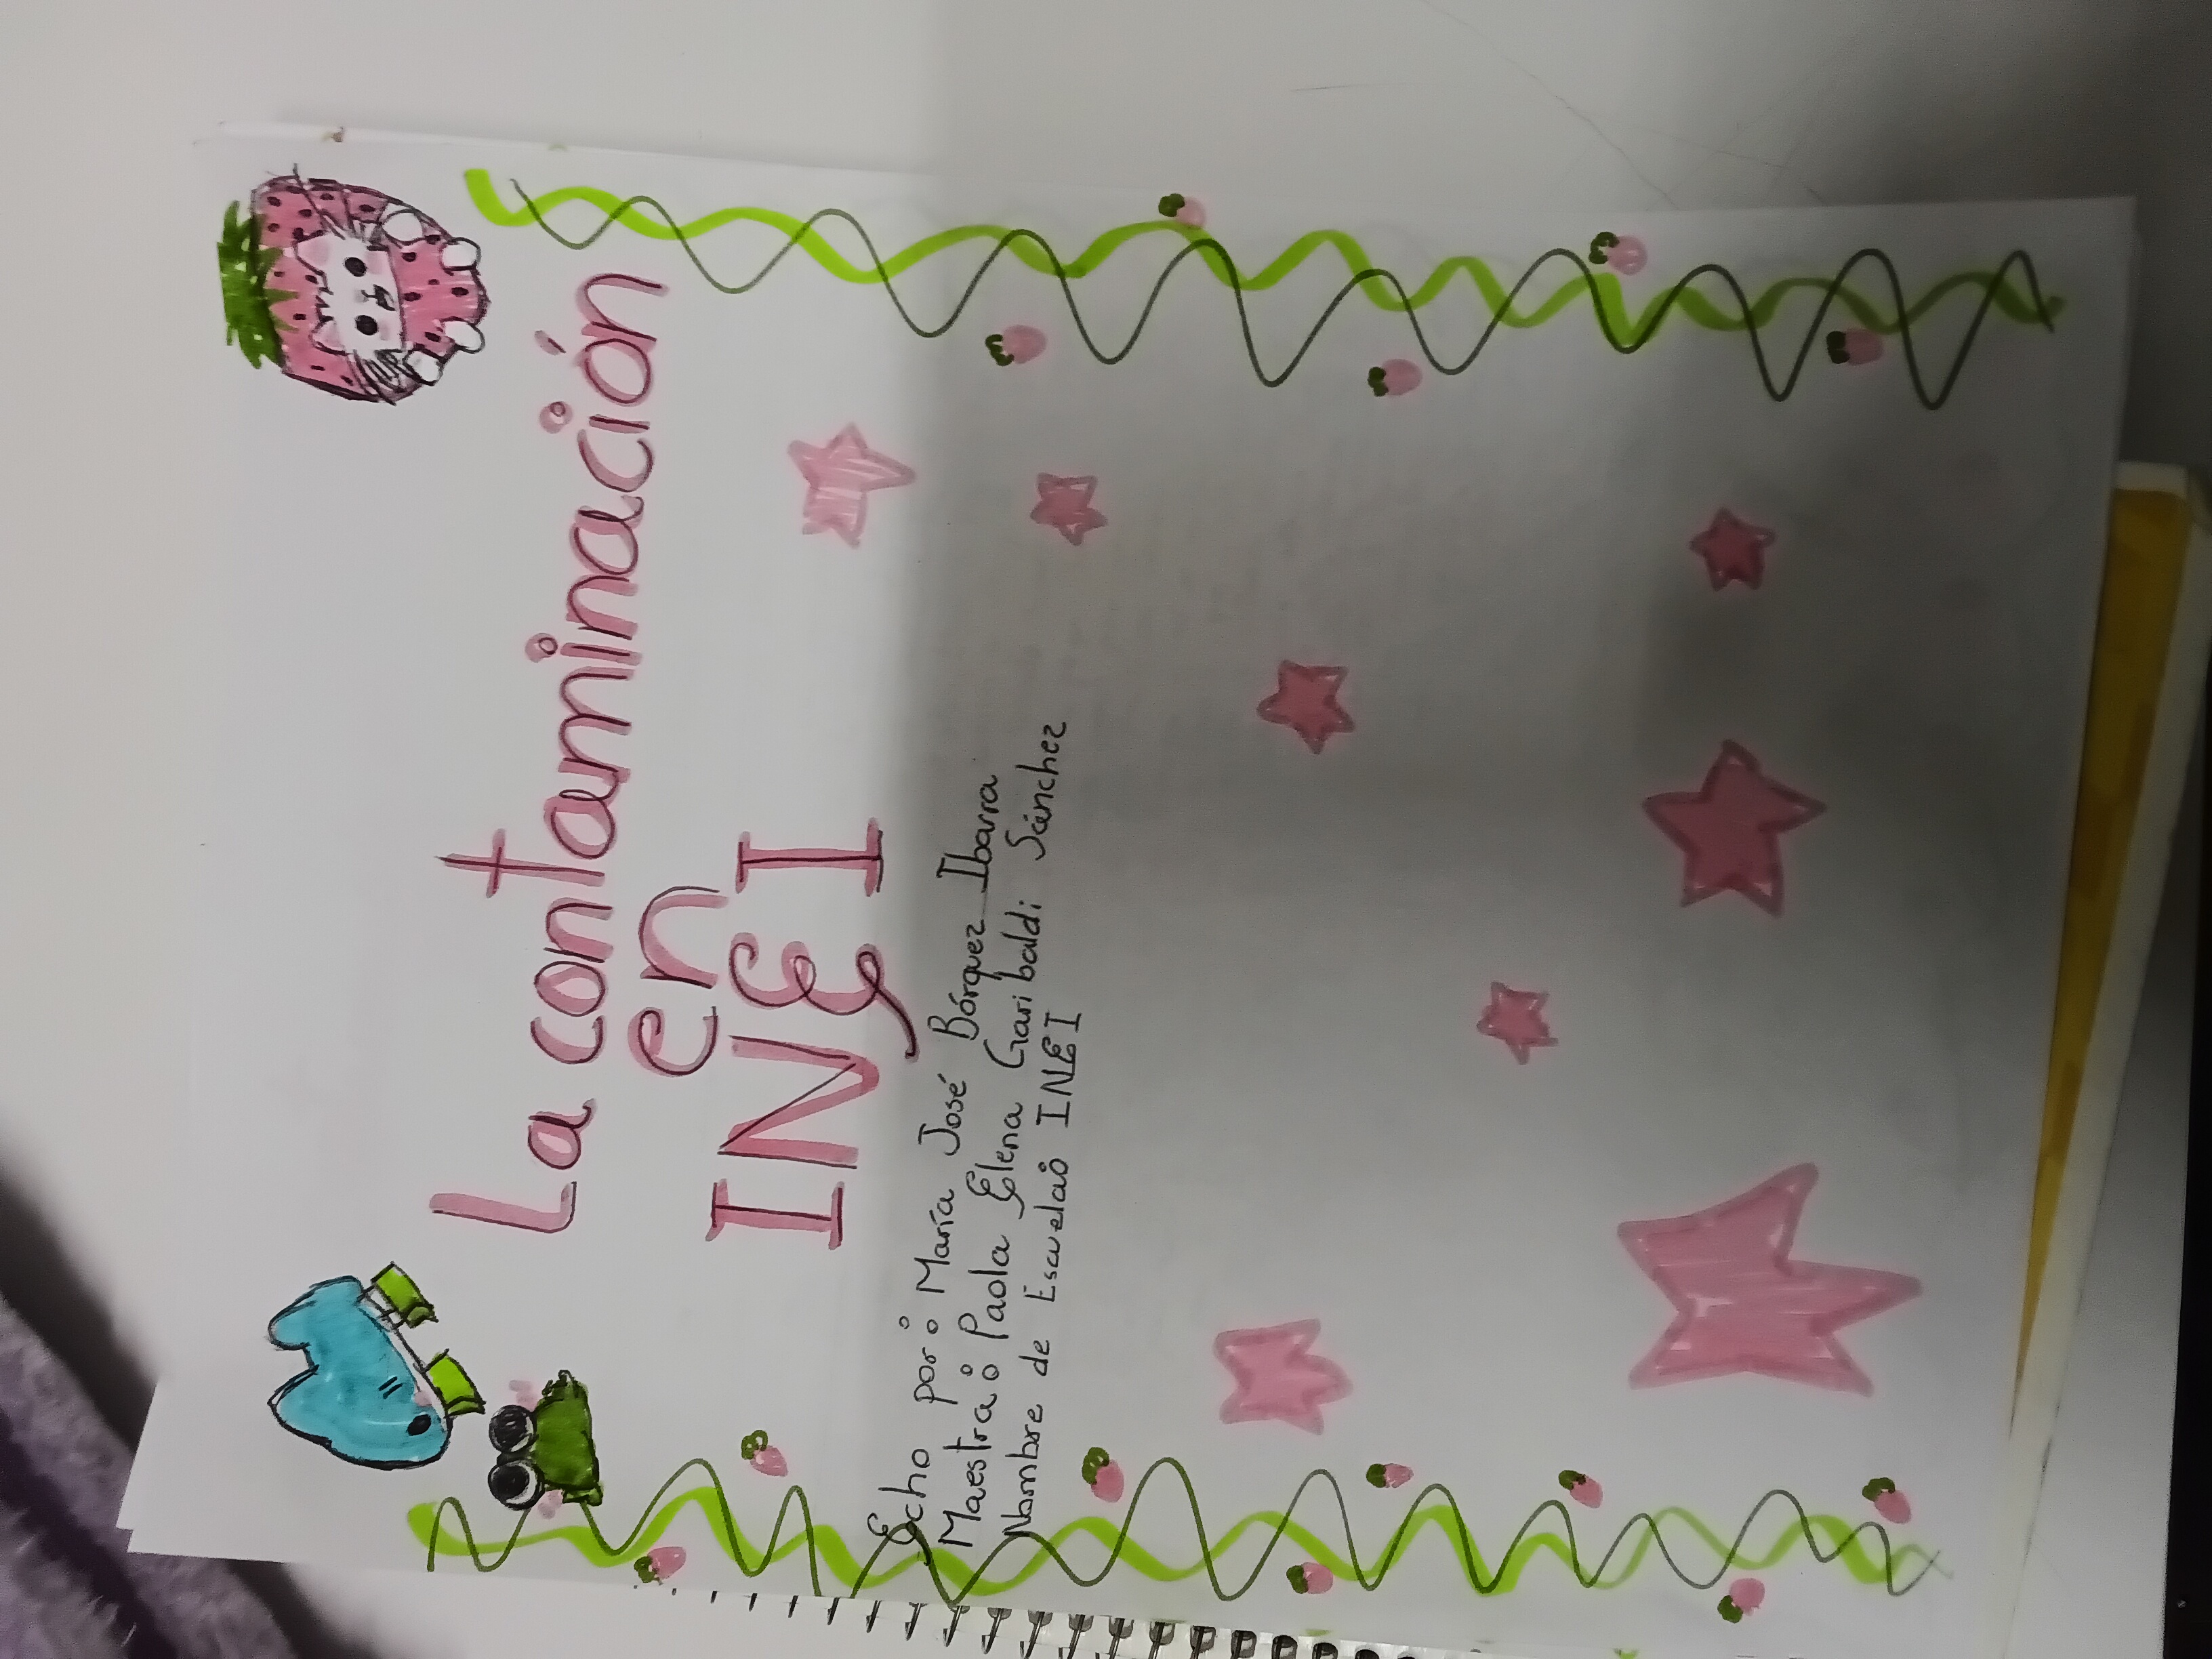 La contaminación
en
INEI
Echo por: María José Bórquez Ibarra
Maestra: Paola Elena Garibaldi Sánchez
Nombre de Escuela: INEI